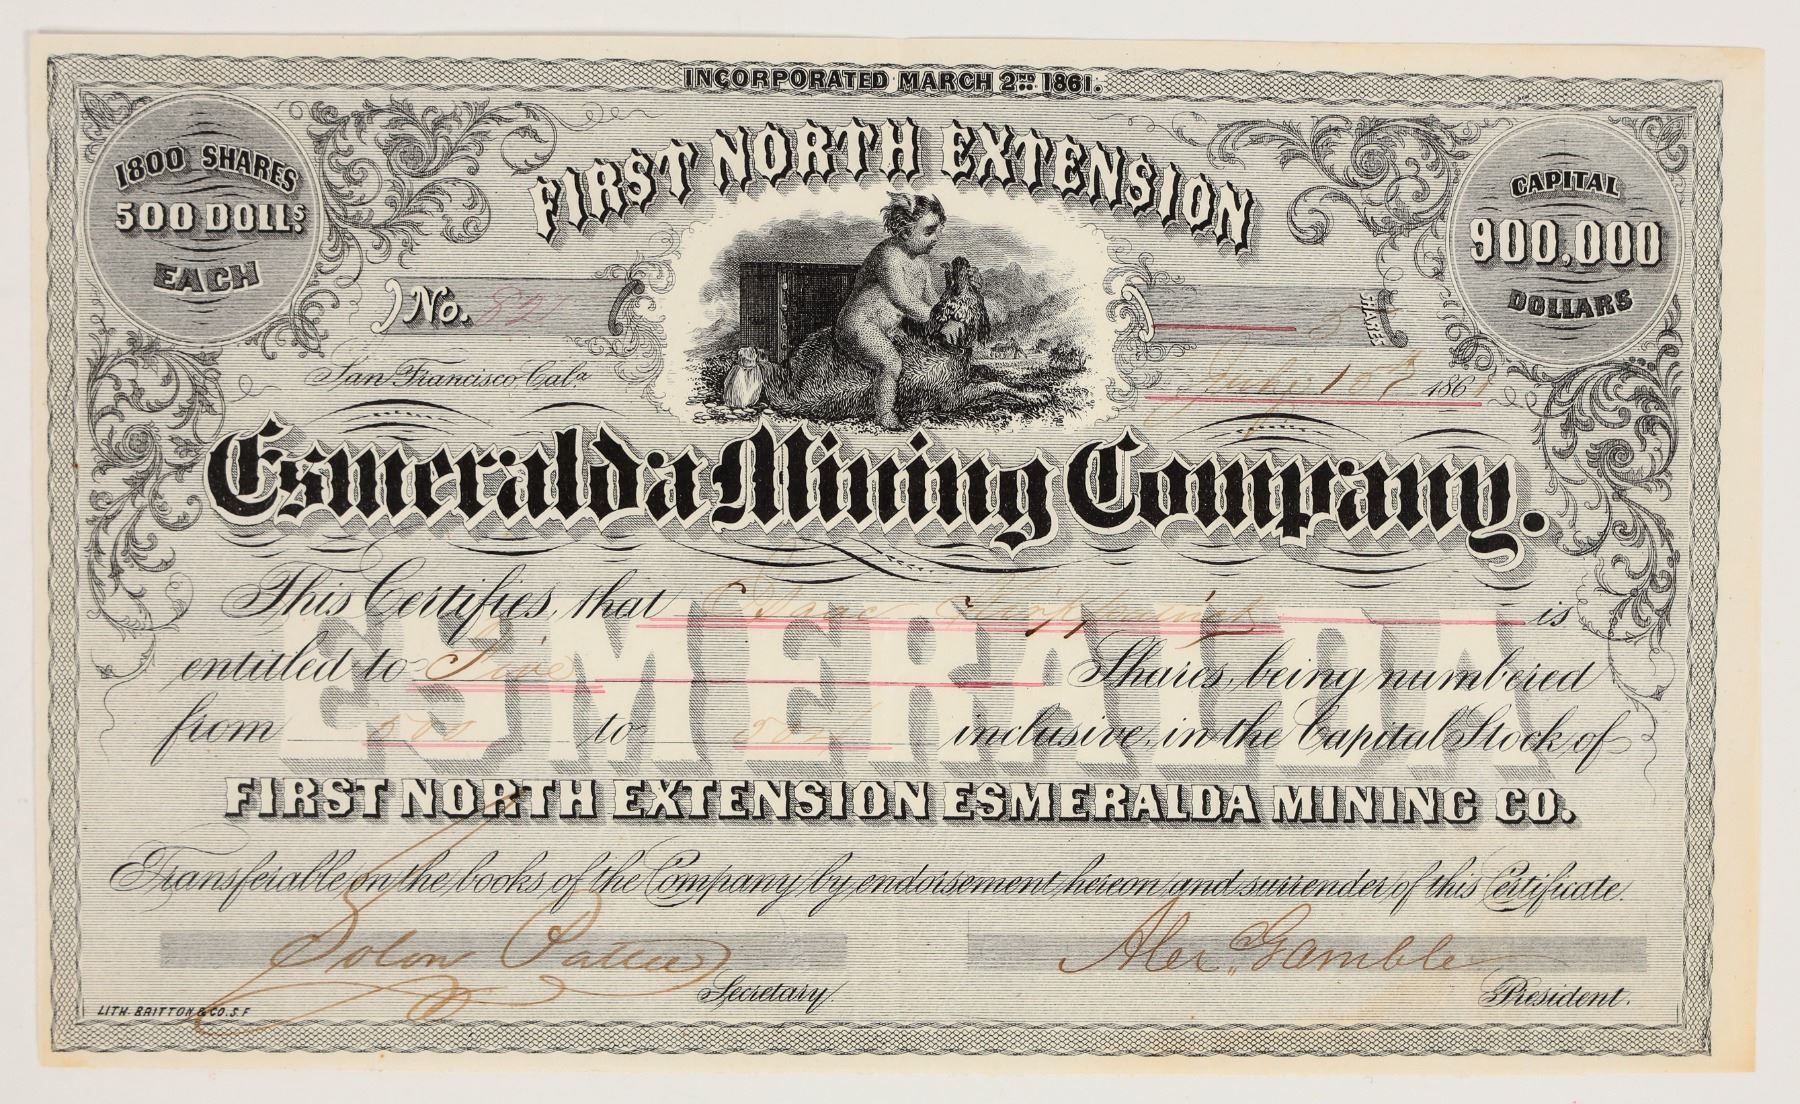 INCORPORATED MARCH 2ND 1861.
1800 SHARES
500 DOLLS.
EACH
FIRST NORTH EXTENSION
CAPITAL
900,000
DOLLARS
No.
5 SHARES
San Francisco Cala July 1861
Esmeralda Mining Company.
ESMERALDA
This Certifies, that Isaac is
entitled to Five Shares, being numbered
from 500 to 504 inclusive, in the Capital Stock of
FIRST NORTH EXTENSION ESMERALDA MINING CO.
Transferable on the books of the Company by endorsement hereon and surrender of this Certificate.
Solon Pattee Secretary
Alex. Gamble President.
LITH. BRITTON & CO. S.F